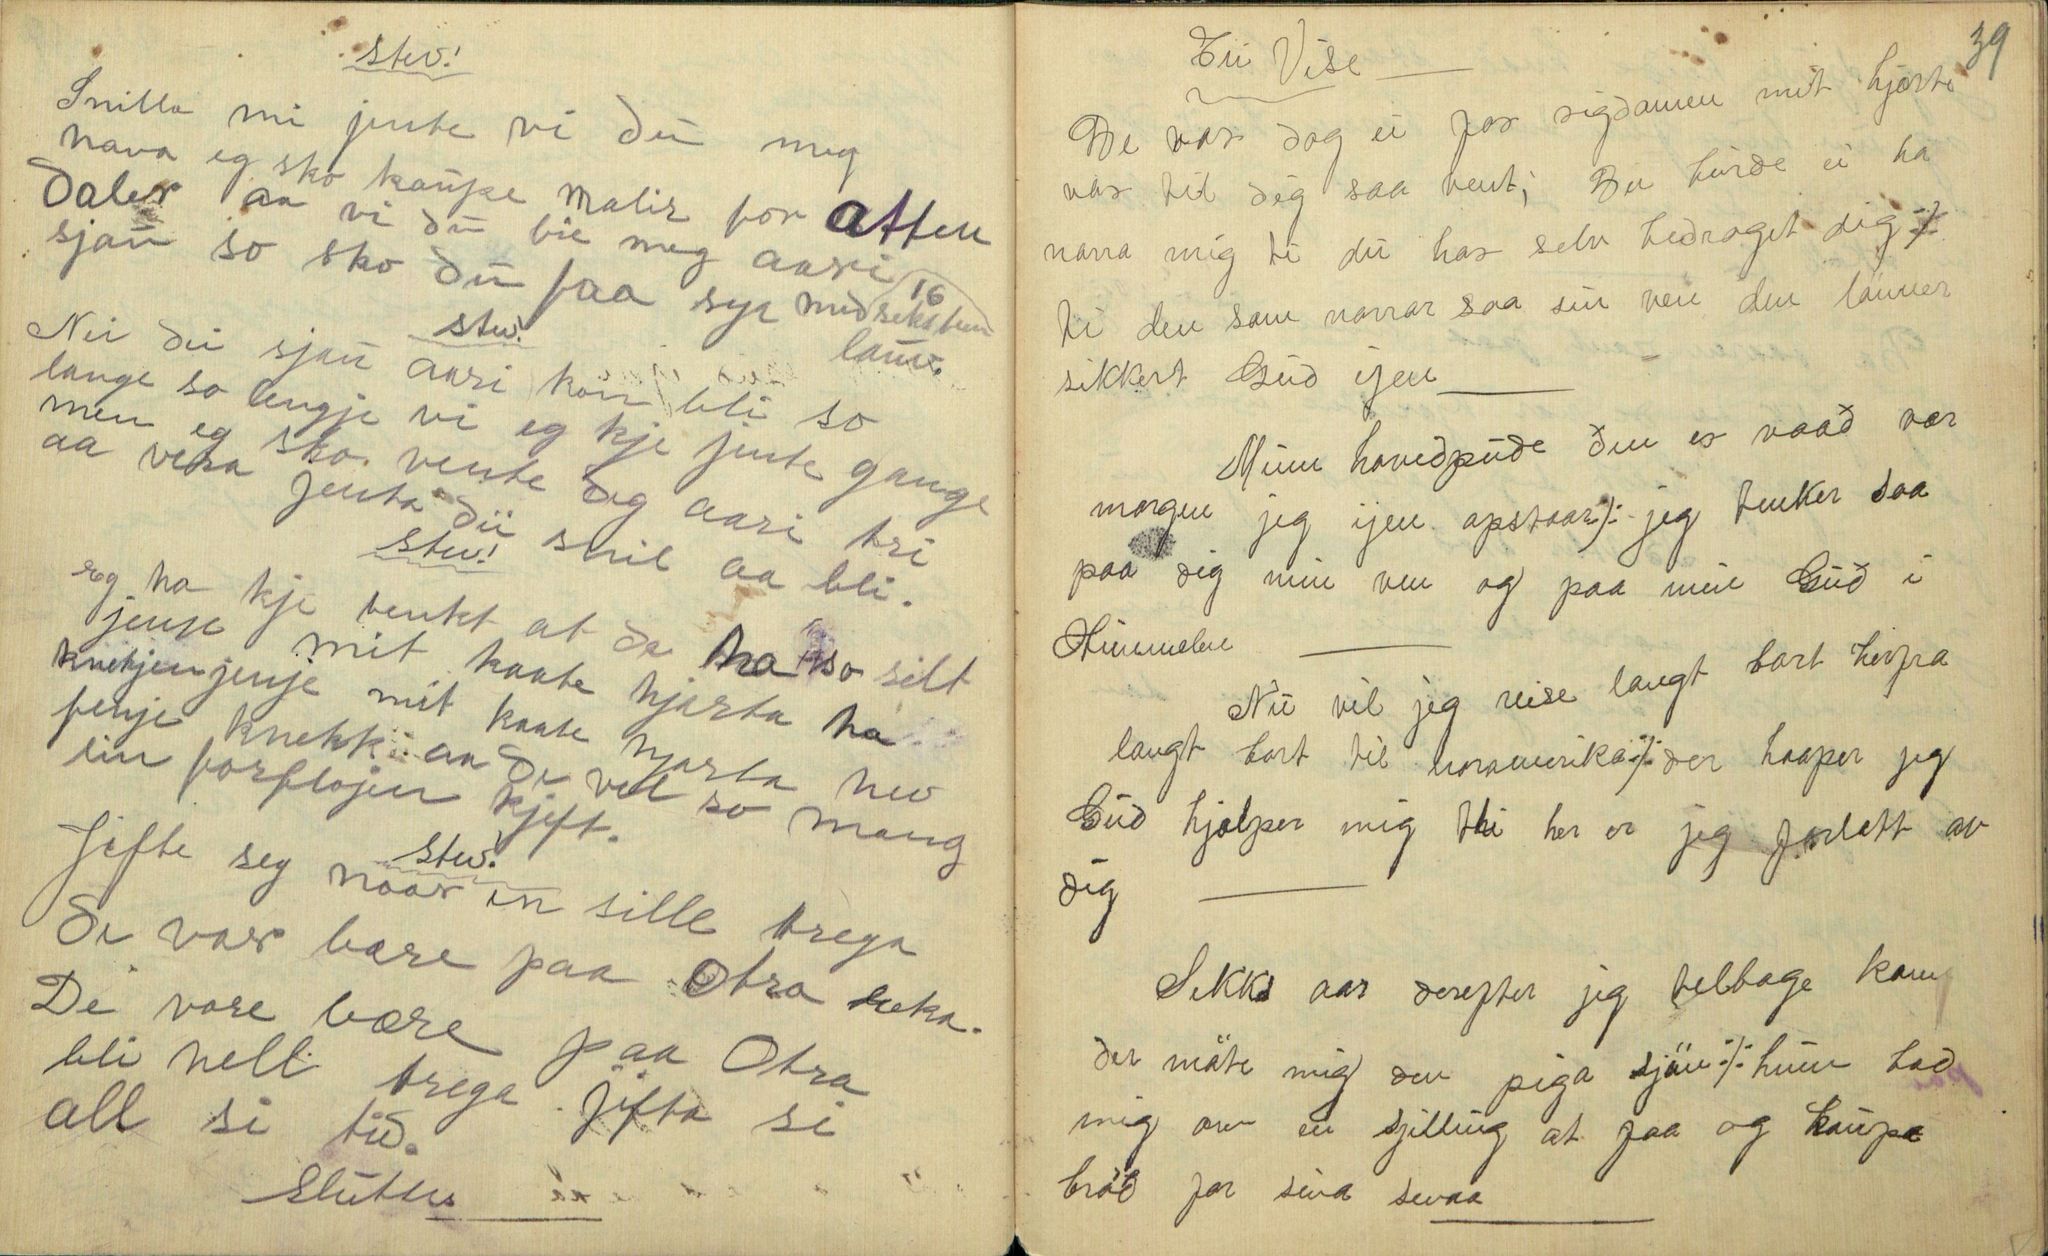 stev!
Snilla mi jente vi du meg
hava eg sko kaupe Malir for atten
Daler aa vi du bie meg aari
sjau so sko du faa sye med seksten
16
lauv.
stev.
Nei du sjau aari kan bli so
lange so lengje vi eg kje jente gange
men eg sko vente deg aari tri
aa vera jenta du snil aa bli.
stev!
eg ha kje tenkt at de ha so silt
jenje mit kaate hjarta ha
knekjen jenje mit kaate hjarta hev
fenje knekk aa de vel so mang
ein forflojen kjeft.
stev.
Jifte seg naar en sille trega
De var bare paa Otra leka.
De vare bare paa Otra
bli hell trega Jifta si
all si tid.
Sluttes
39
En Vise
De var dog ei for rigdamen mit hjarte
var til dig saa vent; Du burde ei ha
narra mig ti du har selv bedraget dig :/:
ti den som narrar saa sin ven den lönner
sikkert Gud ijen
Minn hovedpude den er vaad vær
morgen jeg ijen opstaar :/: jeg tenker saa
paa dig min ven og paa min Gud i
Himmelen
Nu vil jeg reise langt bort herfra
langt bort til noramerika :/: der haaper jeg
Gud hjalper mig thi her er jeg forlatt av
dig
Sekks aar derefter jeg telbage kam
der möte mig den piga sjön :/: hun bad
mig om en sjilling at faa og kaupe
bröd for sina smaa